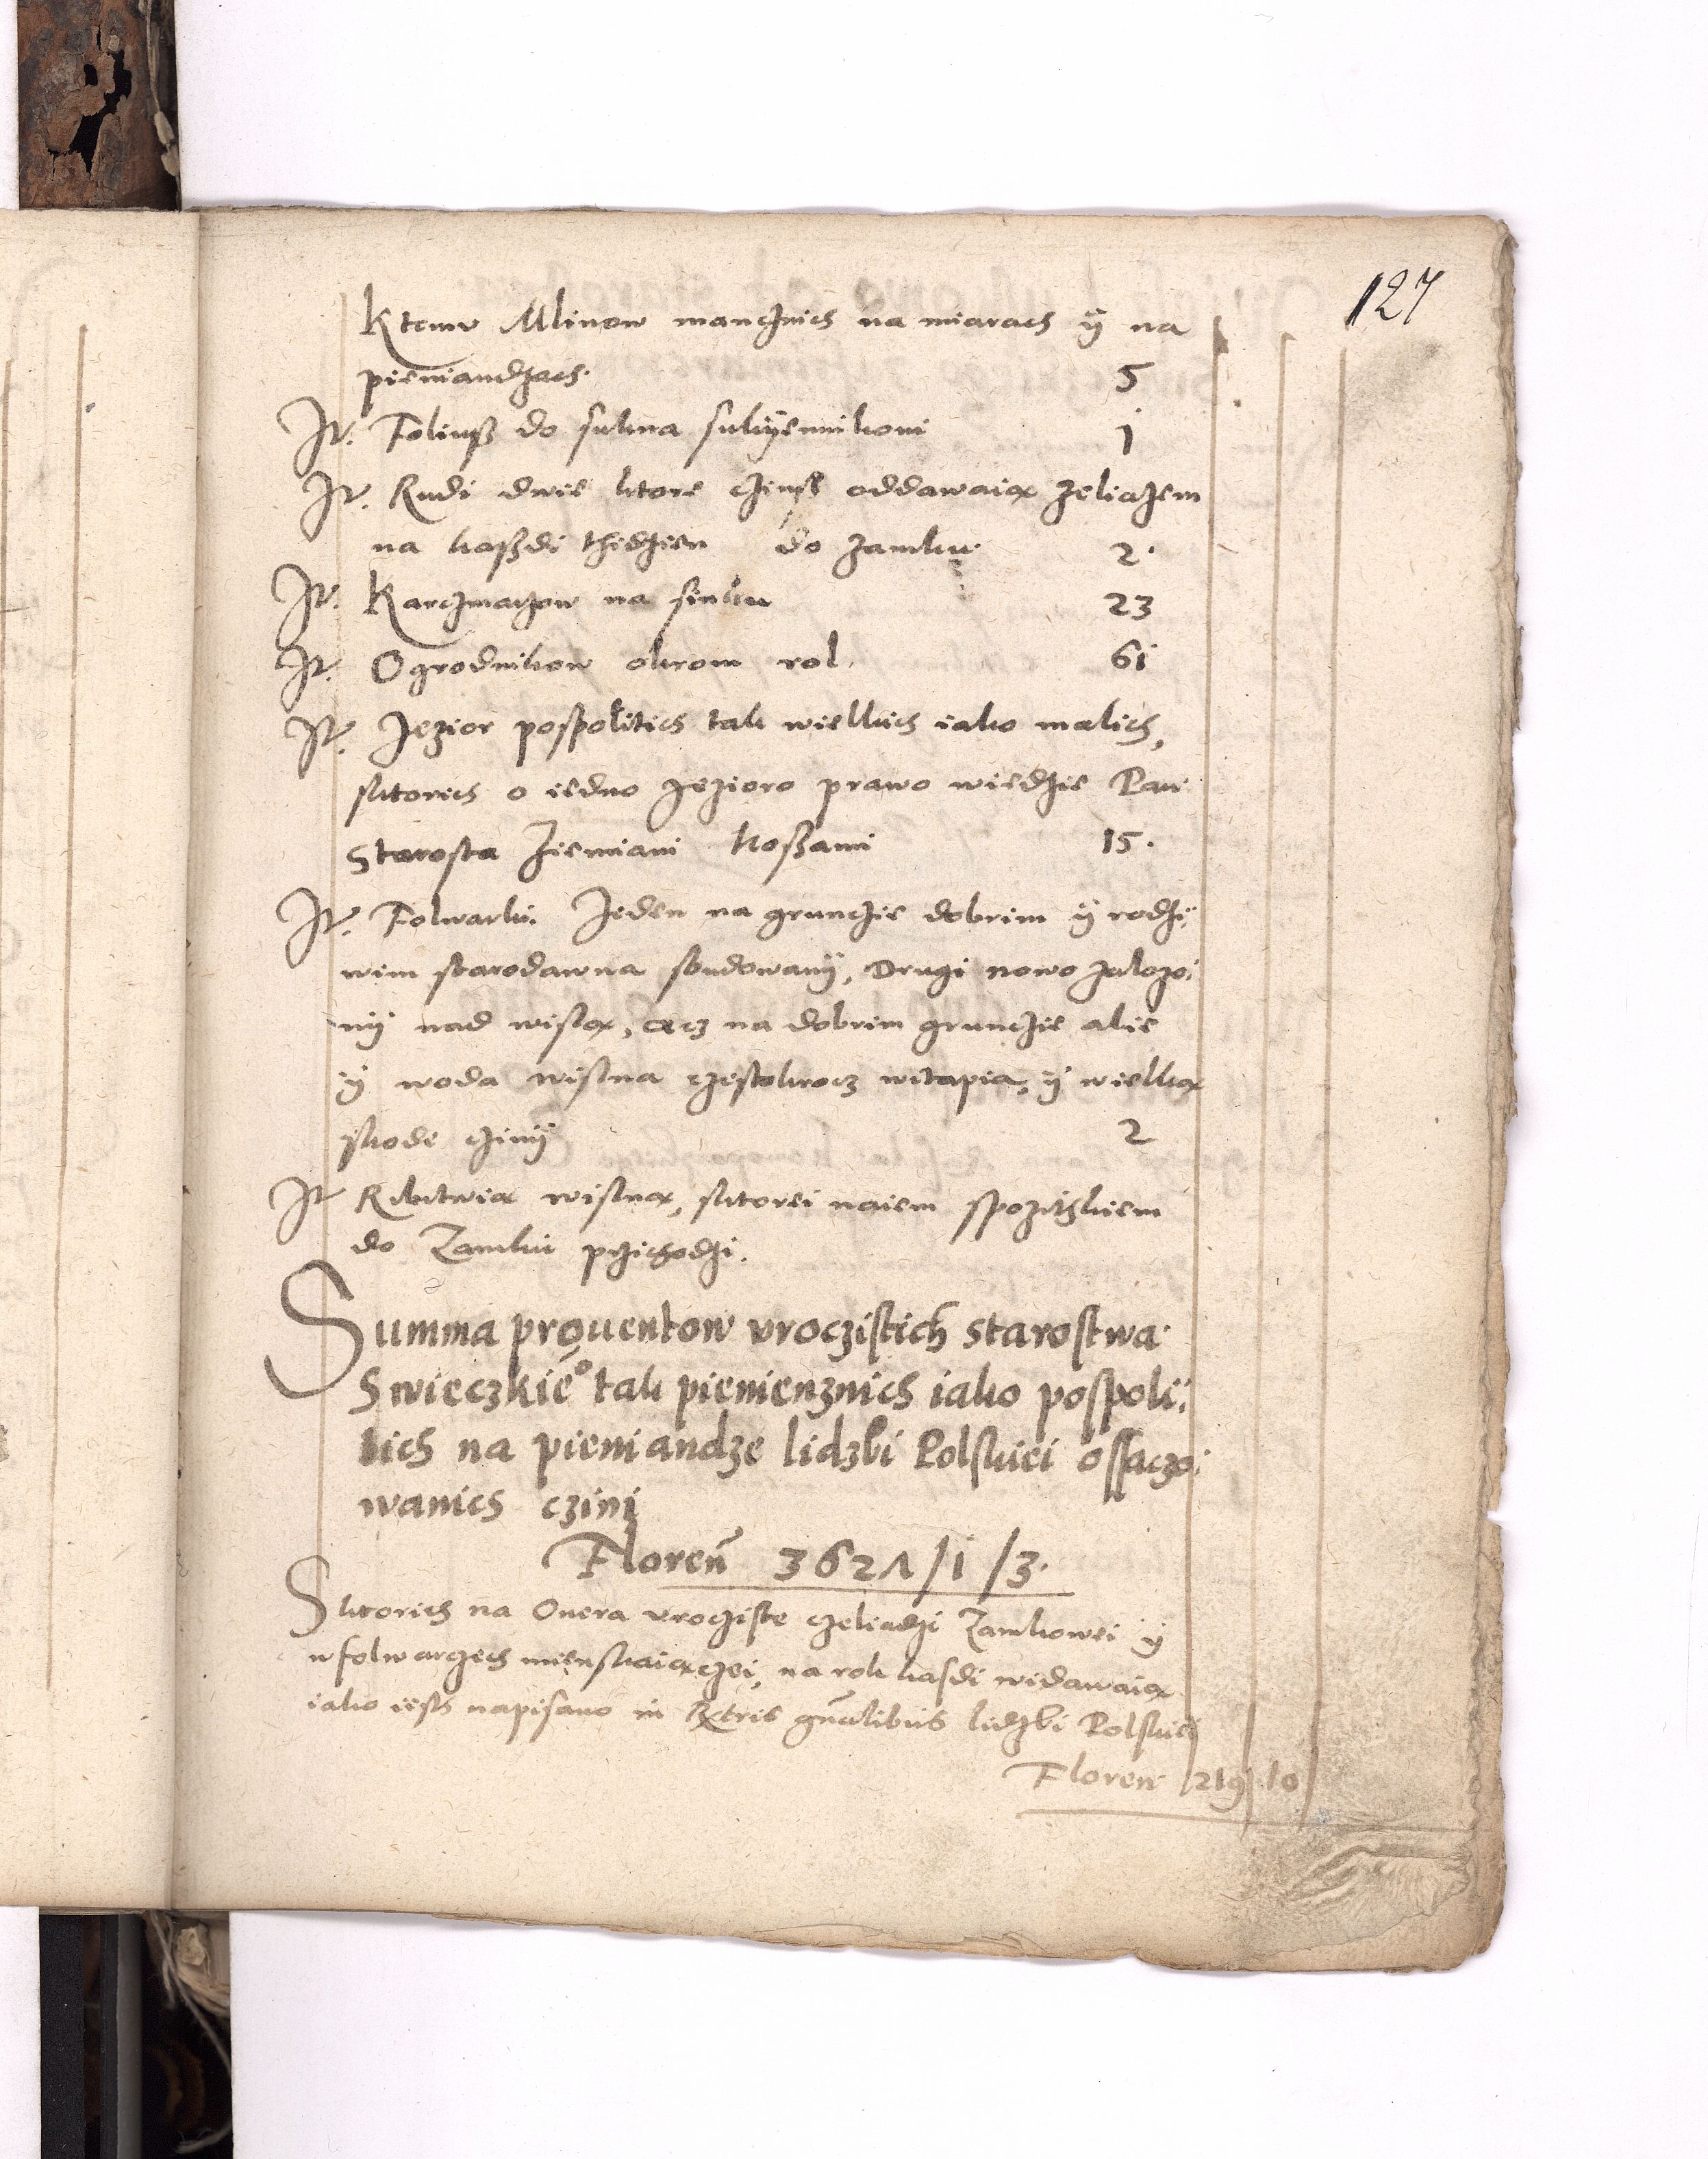 127
Ktemv Mlinow mancznich na miarach ÿ na
pieniandzach. 5
It. Foliusz do sukna sukÿennikom 1
It. Rudi dwie ktore czinsz oddawaią zeliazem
na kaszdi thidzien do zamku. 2.
It. Karczmarzow na sinku 23
It. Ogrodnikow okrom rol. 61
It. Jezior pospolitich tak wielkich iako malich,
sktorich o iedno Jezioro prawo wiedzie Pan
Starosta Ziemiani koszami 15.
It. Folwarki. Jeden na grunczie dobrim ÿ rodzi
wim starodawna sbudowanÿ, Drugi nowo zalozo
nÿ nad wislą, acz na dobrim grunczie alie
ÿ woda wislna czestokrocz witapia, ÿ wielką
skode czinÿ 2
It Ributwią wislną, sktorei naiem spozitkiem
do Zamku przichodzi.
Summa prouentow vroczistich starostwa
Swieczkie͂o tak pienienznich iako pospoli
tich na pieniandze lidzbi Polskiei ossaczo
wanich czini
Floren͂ 3621/1/3.
Sktorich na Onera vrocziste czeliadzi Zamkowei ÿ
wfolwarzech mieskaiączei, na rok kasdi widawaią
iako iest napisano in Rx̃tris gñalibus lidzbi Polskiei
Floren 219 10